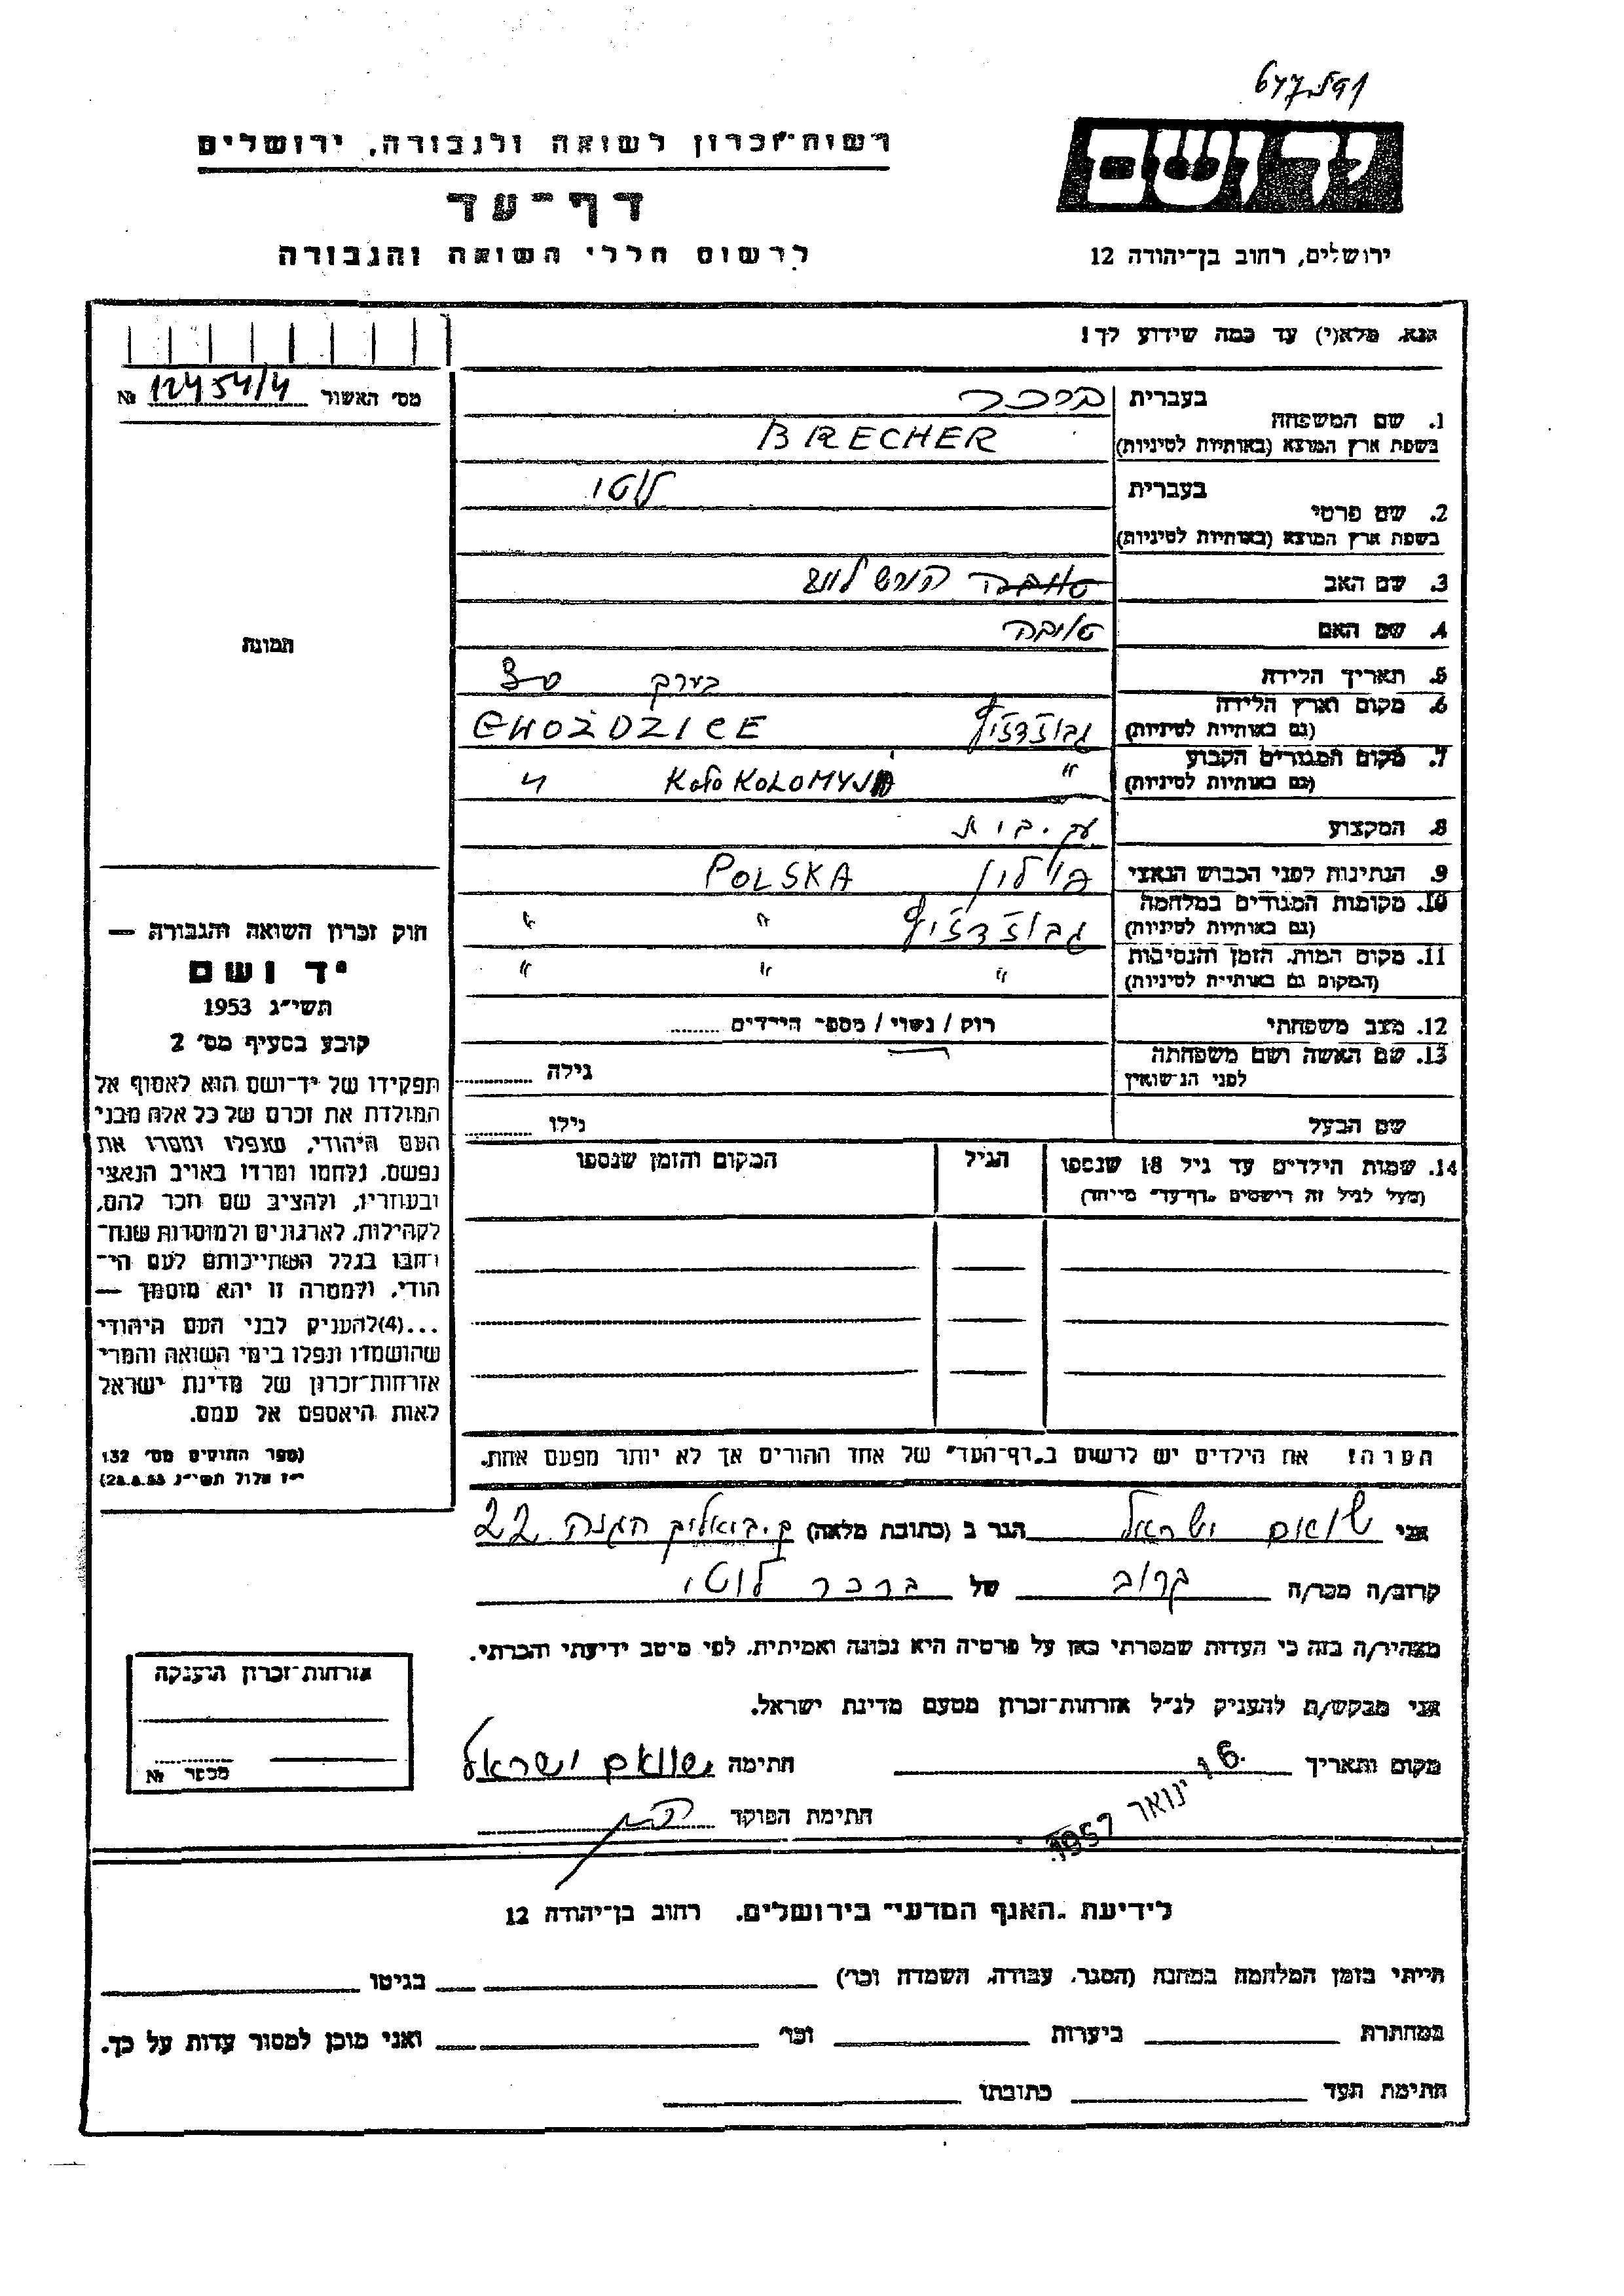 רשות־זכרון לשואה ולגבורה, ירושלים
דף־עד
לרשום חללי השואה והגבורה
יד ושם
ירושלים, רחוב בן־יהודה 12
נא מלא(י) עד כמה שידוע לך!
מס׳ האשור 12454/4 №
תמונה
1. שם המשפחה
בעברית ברכר
בשפת ארץ המוצא (באותיות לטיניות) BRECHER
2. שם פרטי
בעברית לוטי
בשפת ארץ המוצא (באותיות לטיניות)
3. שם האב הירש
4. שם האם טויבה
5. תאריך הלידה בערך 30
6. מקום וארץ הלידה
(גם באותיות לטיניות) GWOŹDZICE
7. מקום המגורים הקבוע
(גם באותיות לטיניות) " KOŁO KOLOMYJA "
8. המקצוע עק. בית
9. הנתינות לפני הכבוש הנאצי פוילין POLSKA
10. מקומות המגורים במלחמה
(גם באותיות לטיניות) " "
11. מקום המות, הזמן והנסיבות
(המקום גם באותיות לטיניות) " " "
12. מצב משפחתי רוק / נשוי / מספר הילדים
13. שם האשה ושם משפחתה
לפני הנישואין גילה
שם הבעל גילו
14. שמות הילדים עד גיל 18 שנספו
(מעל לגיל זה רישמים „דף־עד״ מייחד)
הגיל
המקום והזמן שנספו
הערה! את הילדים יש לרשום ב„דף־העד״ של אחד ההורים אך לא יותר מפעם אחת.
חוק זכרון השואה והגבורה —
יד ושם
תשי״ג 1953
קובע בסעיף מס׳ 2
תפקידו של יד־ושם הוא לאסוף אל
המולדת את זכרם של כל אלה מבני
העם היהודי, שנפלו ומסרו את
נפשם, נלחמו ומרדו באויב הנאצי
ובעוזריו, ולהציב שם וזכר להם,
לקהילות, לארגונים ולמוסדות שנח־
רבו בגלל השתייכותם לעם הי־
הודי, ולמטרה זו יהא מוסמך —
...(4)להעניק לבני העם היהודי
שהושמדו ונפלו בימי השואה והמרי
אזרחות־זכרון של מדינת ישראל
לאות היאספם אל עמם.
(ספר החוקים מס׳ 132
י״ז אלול תשי״ג 28.8.53)
אני ישראל הגר ב (כתובת מלאה) ק. ביאליק הגנה 22
קרוב/ה מכר/ה קרוב של ברכר לוטי
מצהיר/ה בזה כי העדות שמסרתי כאן על פרטיה היא נכונה ואמיתית, לפי מיטב ידיעתי והכרתי.
אני מבקש/ת להעניק לנ״ל אזרחות־זכרון מטעם מדינת ישראל.
מקום ותאריך 16 ינואר 1957 חתימה ישראל
חתימת הפוקד
אזרחות־זכרון הוענקה
מספר №
לידיעת „האגף המדעי״ בירושלים, רחוב בן־יהודה 12
הייתי בזמן המלחמה במחנה (הסגר, עבודה, השמדה וכו׳) בגיטו
במחתרת ביערות וכו׳ ואני מוכן למסור עדות על כך.
חתימת העד כתובתו